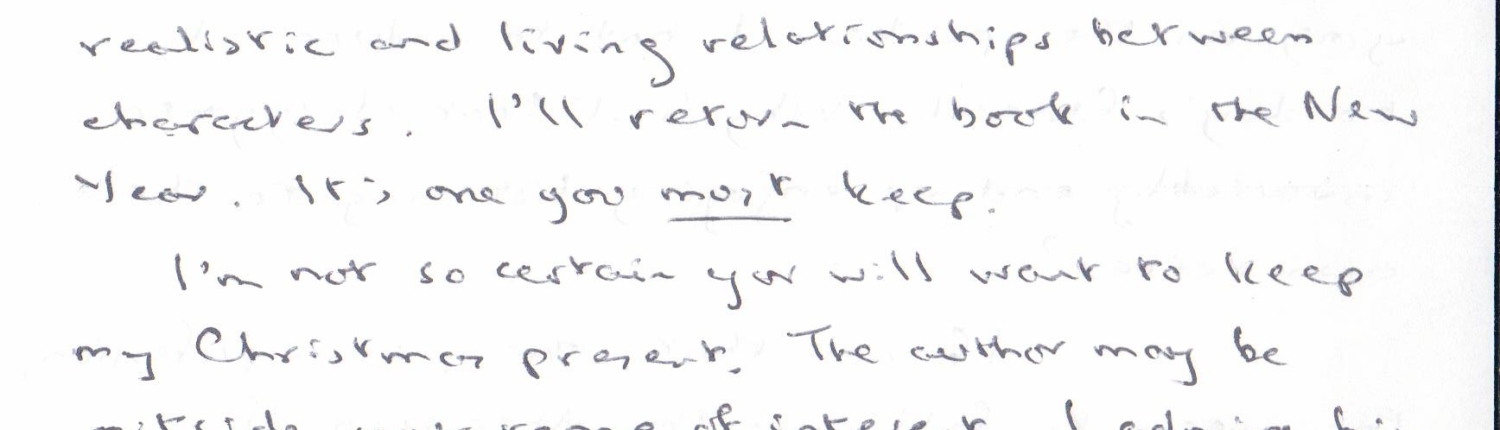 realistic and living relationships between
characters. I'll return the book in the New
Year. It's one you must keep.
I'm not so certain you will want to keep
my Christmas present. The author may be
outside your range of interest. I admire hi